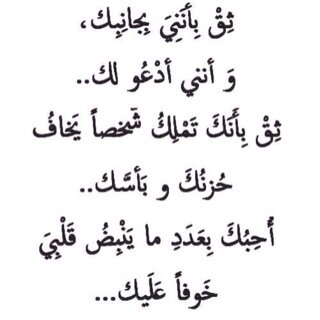 ثِقْ بِأَنَنِيَ بِجانِبِك،
وَ أنني أدْعُو لك..
ثِقْ بِأَنَكَ تَمْلِكُ شّخصاً يَخافُ
حُزنُكَ و بَأسَّك..
أُحِبُكَ بِعَدَدِ ما يَنْبِضُ قَلْبِيَ
خَوفاً عَلَيك...